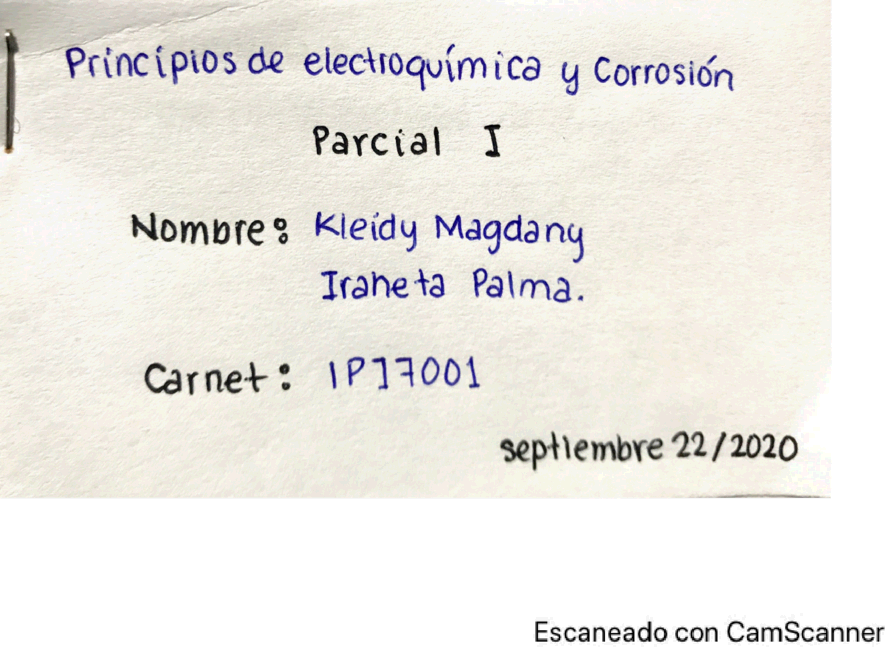 Principios de electroquímica y Corrosión
Parcial I
Nombre: Kleidy Magdany
Iraheta Palma.
Carnet: IP17001
septiembre 22/2020
Escaneado con CamScanner